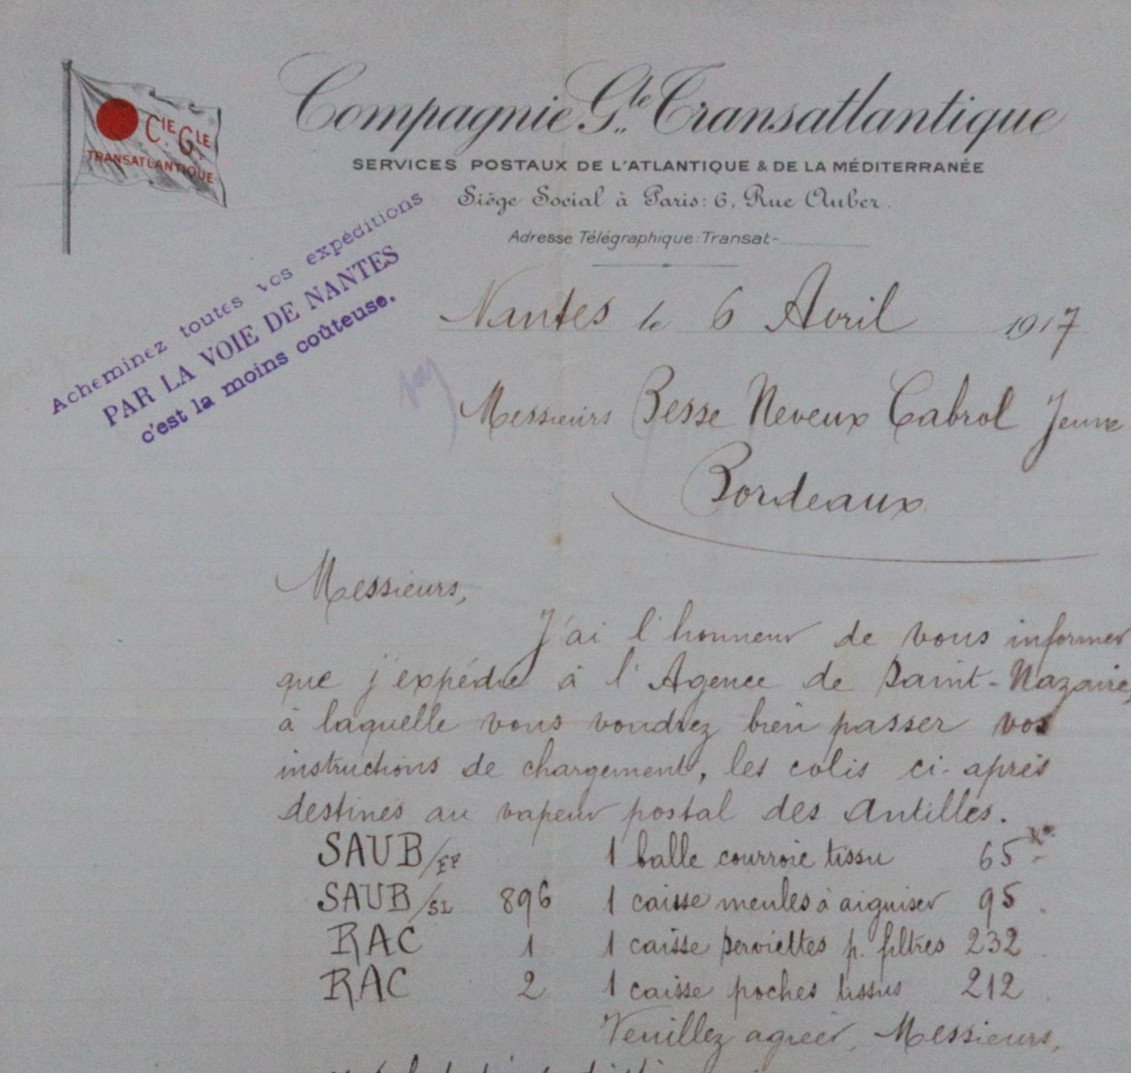 CIE GLE
TRANSATLANTIQUE
Compagnie Gle Transatlantique
SERVICES POSTAUX DE L'ATLANTIQUE & DE LA MÉDITERRANÉE
Siège Social à Paris: 6, Rue Auber.
Adresse Télégraphique: Transat-
Acheminez toutes vos expéditions
PAR LA VOIE DE NANTES
c'est la moins coûteuse.
Nantes le 6 Avril 1917
Messieurs Besse Neveux Cabrol Jeune
Bordeaux
Messieurs,
J'ai l'honneur de vous informer
que j'expédie à l'Agence de Saint-Nazaire,
à laquelle vous voudrez bien passer vos
instructions de chargement, les colis ci-après
destinés au vapeur postal des Antilles.
SAUB 1 balle courroie tissu 65 Ko.
SAUB/SL 896 1 caisse meules à aiguiser 95
RAC 1 1 caisse serviettes p. filtres 232
RAC 2 1 caisse poches tissus 212
Veuillez agréer, Messieurs,